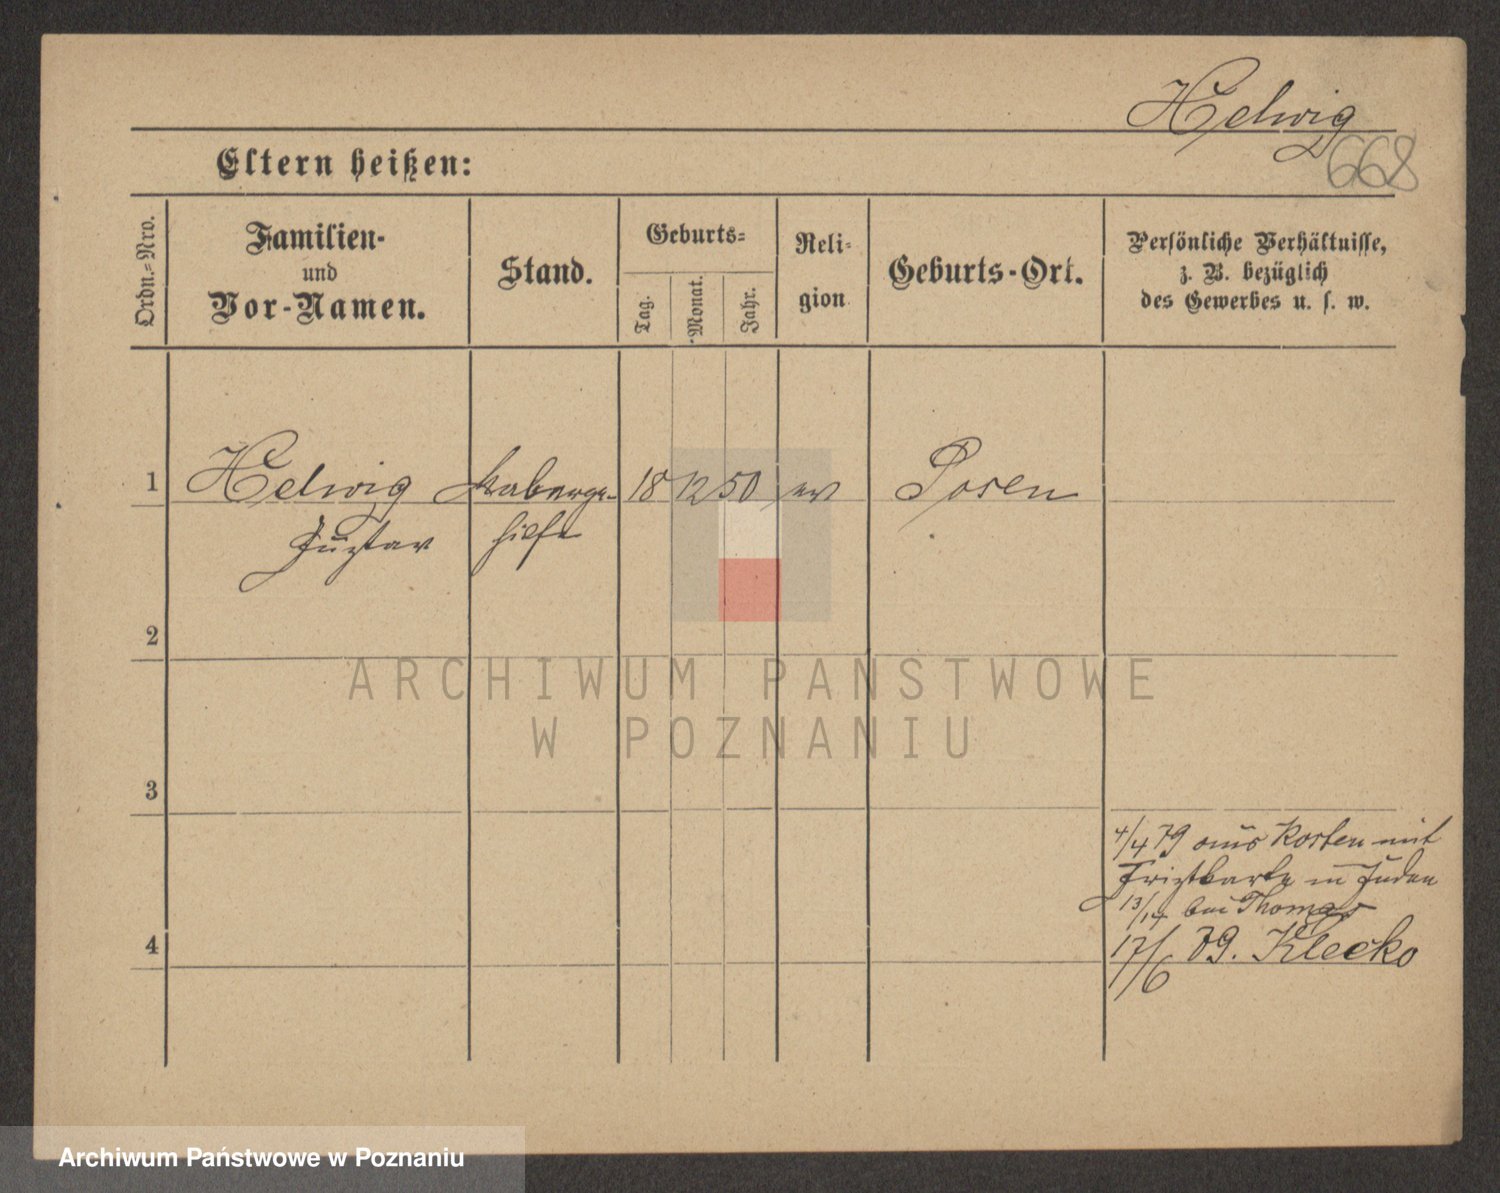 Helwig
668
Eltern heißen:
Ordn.-Nro.
Familien-
und
Vor-Namen.
Stand.
Geburts-
Tag.
Monat.
Jahr.
Reli-
gion
Geburts-Ort.
Persönliche Verhältnisse,
z. B. bezüglich
des Gewerbes u. s. w.
1
Helwig
18
12
50
ev
Posen
Gustav
hilfe
2
ARCHIWUM PAŃSTWOWE
W POZNANIU
3
4/4 79 aus Kosten mit
in Juden
13/14 bei Thomas
4
17/6 79. Klecko
Archiwum Państwowe w Poznaniu